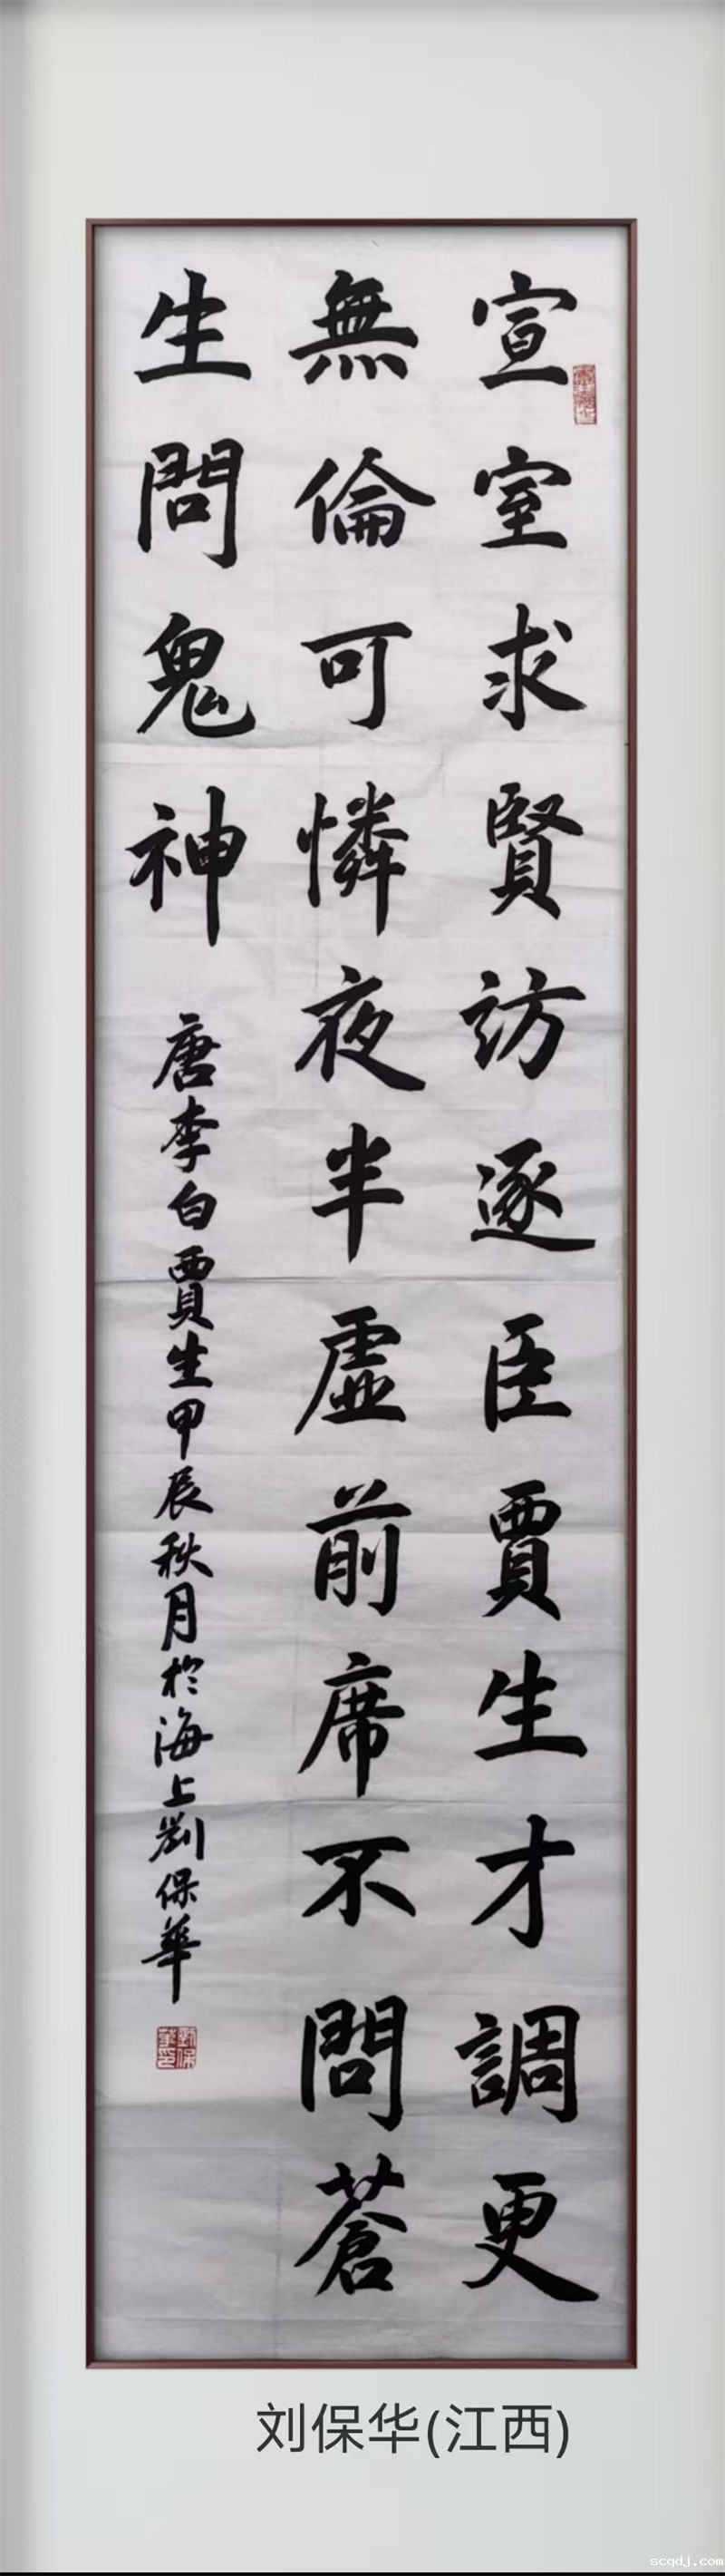 宣室求賢訪逐臣賈生才調更
無倫可憐夜半虛前席不問蒼
生問鬼神
唐李白賈生甲辰秋月於海上劉保華
劉保華印
刘保华(江西)
scqdj.com